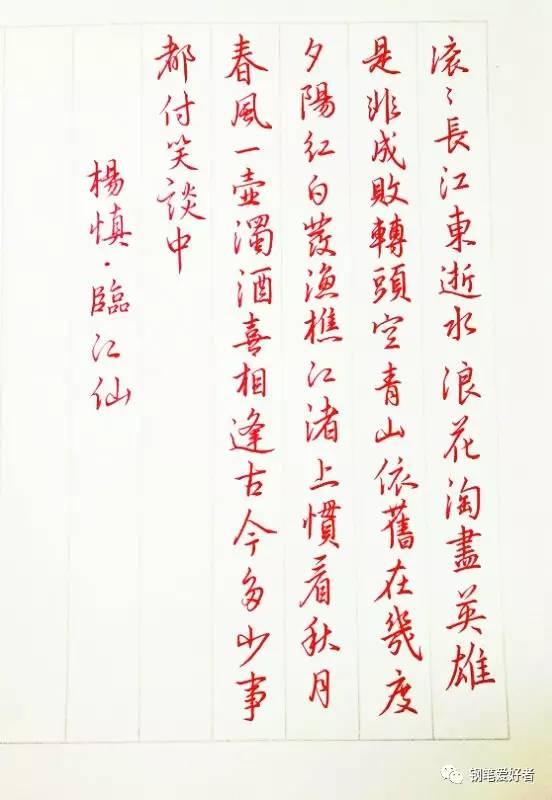 滚〻長江東逝水浪花淘盡英雄
是非成敗轉頭空青山依舊在幾度
夕陽紅白发渔樵江渚上慣看秋月
春風一壺濁酒喜相逢古今多少事
都付笑談中
楊慎·臨江仙
钢笔爱好者